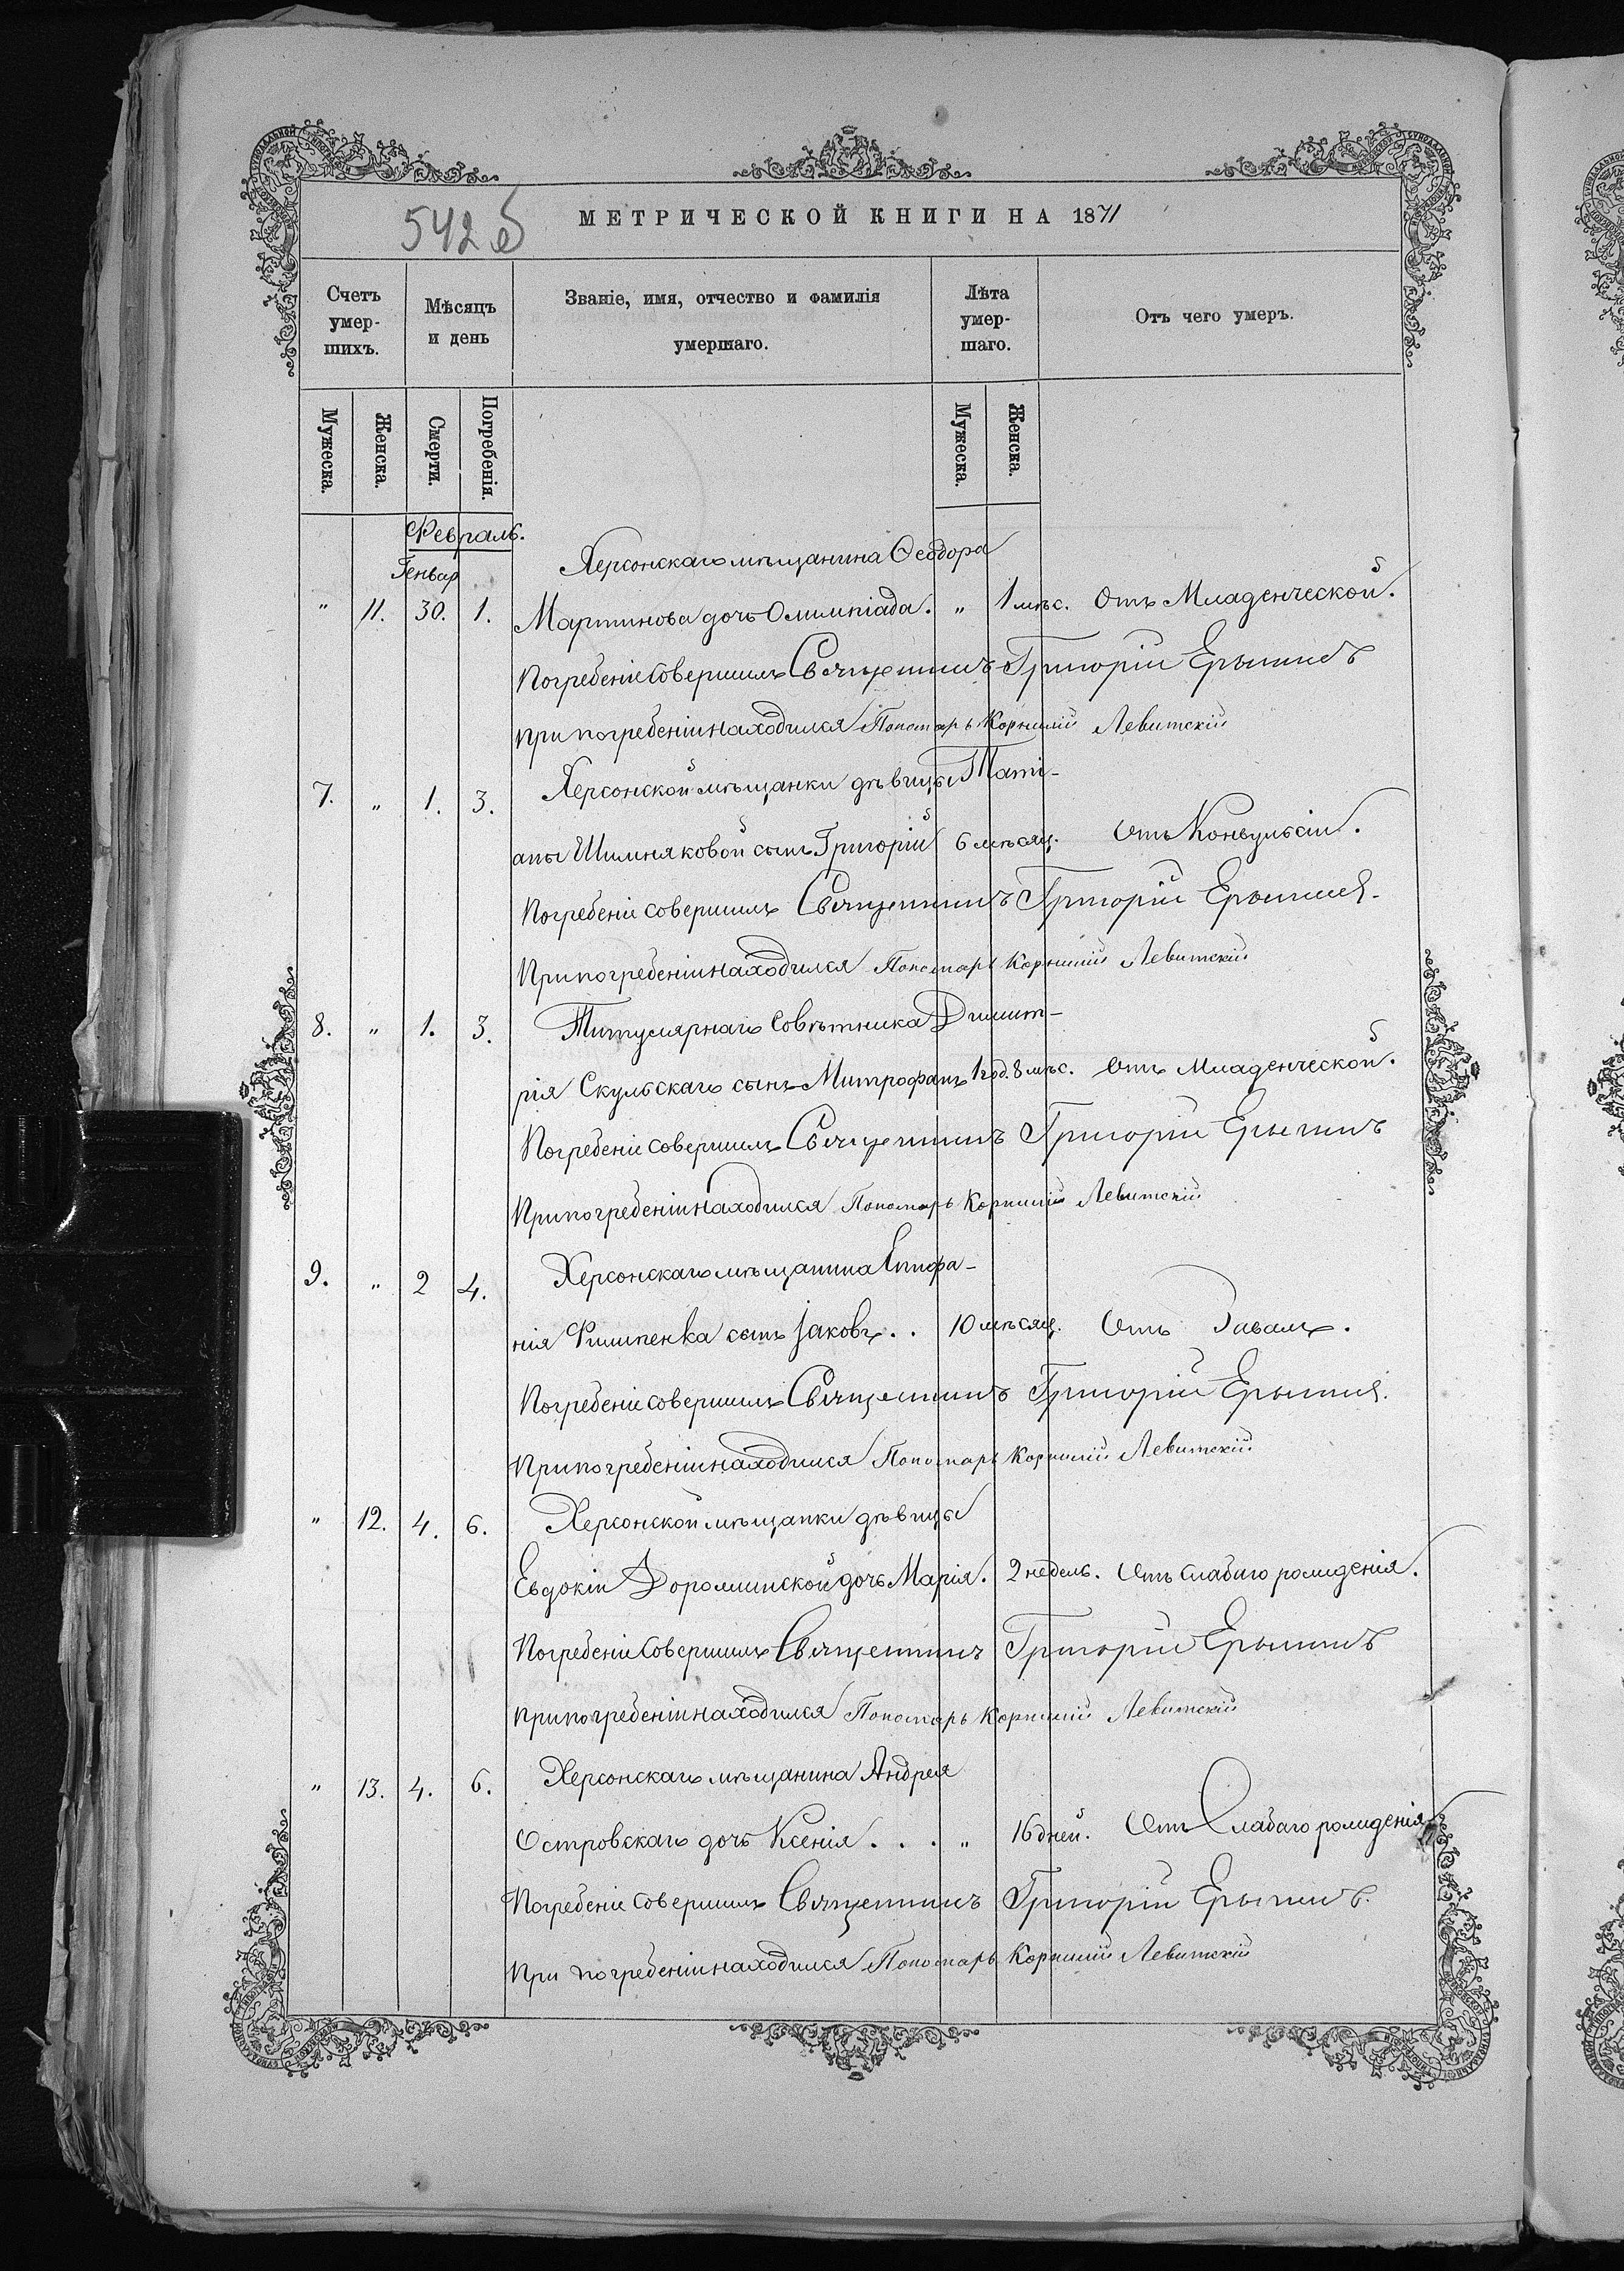 542 б
МЕТРИЧЕСКОЙ КНИГИ НА 1871
Счетъ умер-шихъ. Мѣсяцъ и день Званіе, имя, отчество и фамилія умершаго. Лѣта умер-шаго. Отъ чего умеръ.
Мужеска. Женска. Смерти. Погребенія. Мужеска. Женска.
Февраль.
Генвар Херсонскаго мѣщанина Ѳеодора
" 11. 30. 1. Мартинова дочь Олимпіада. " 1 мѣс. Отъ Младенческой.
Погребеніе совершилъ Священникъ Григорій
При погребеніи находился Пономарь Корнилій Левитскій
7. " 1. 3. Херсонской мѣщанки дѣвицы Таті-
аны Шимняковой сынъ Григорій 6 мѣсяц. Отъ Конвульсіи.
Погребеніе совершилъ Священникъ Григорій
При погребеніи находился Пономарь Корнилій Левитскій
8. " 1. 3. Титулярнаго Совѣтника Димит-
рія Скульскаго сынъ Митрофанъ 1 год. 8 мѣс. Отъ Младенческой.
Погребеніе совершилъ Священникъ Григорій
При погребеніи находился Пономарь Корнилій Левитскій
9. " 2 4. Херсонскаго мѣщанина Епифа-
нія Филипенка сынъ Іаковъ . . 10 мѣсяц. Отъ
Погребеніе совершилъ Священникъ Григорій
При погребеніи находился Пономарь Корнилій Левитскій
" 12. 4. 6. Херсонской мѣщанки дѣвицы
Евдокіи дочь Марія. 2 недѣль. Отъ слабаго рожденія.
Погребеніе совершилъ Священникъ Григорій
При погребеніи находился Пономарь Корнилій Левитскій
" 13. 4. 6. Херсонскаго мѣщанина Андрея
Островскаго дочь Ксенія . . . " 16 дней. Отъ Слабаго рожденія
Погребеніе совершилъ Священникъ Григорій
При погребеніи находился Пономарь Корнилій Левитскій